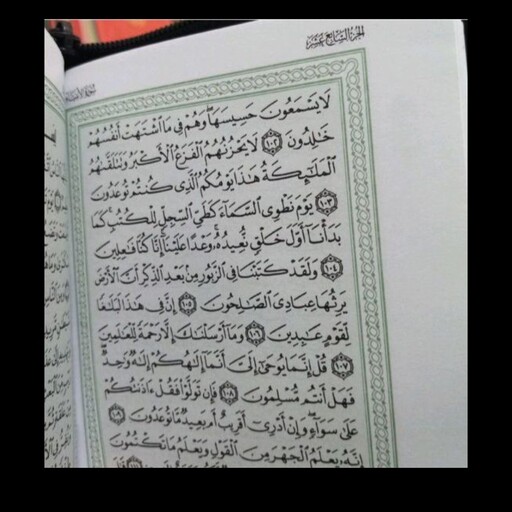 الجزء السابع عشر
سورة الأنبياء
لَا يَسْمَعُونَ حَسِيسَهَا وَهُمْ فِي مَا اشْتَهَتْ أَنفُسُهُمْ
خَالِدُونَ ﴿١٠٢﴾ لَا يَحْزُنُهُمُ الْفَزَعُ الْأَكْبَرُ وَتَتَلَقَّاهُمُ
الْمَلَائِكَةُ هَذَا يَوْمُكُمُ الَّذِي كُنتُمْ تُوعَدُونَ
﴿١٠٣﴾ يَوْمَ نَطْوِي السَّمَاءَ كَطَيِّ السِّجِلِّ لِلْكُتُبِ كَمَا
بَدَأْنَا أَوَّلَ خَلْقٍ نُّعِيدُهُ وَعْدًا عَلَيْنَا إِنَّا كُنَّا فَاعِلِينَ
﴿١٠٤﴾ وَلَقَدْ كَتَبْنَا فِي الزَّبُورِ مِن بَعْدِ الذِّكْرِ أَنَّ الْأَرْضَ
يَرِثُهَا عِبَادِيَ الصَّالِحُونَ ﴿١٠٥﴾ إِنَّ فِي هَذَا لَبَلَاغًا
لِّقَوْمٍ عَابِدِينَ ﴿١٠٦﴾ وَمَا أَرْسَلْنَاكَ إِلَّا رَحْمَةً لِّلْعَالَمِينَ
﴿١٠٧﴾ قُلْ إِنَّمَا يُوحَى إِلَيَّ أَنَّمَا إِلَهُكُمْ إِلَهٌ وَاحِدٌ
فَهَلْ أَنتُم مُّسْلِمُونَ ﴿١٠٨﴾ فَإِن تَوَلَّوْا فَقُلْ آذَنتُكُمْ
عَلَى سَوَاءٍ وَإِنْ أَدْرِي أَقَرِيبٌ أَم بَعِيدٌ مَّا تُوعَدُونَ ﴿١٠٩﴾
إِنَّهُ يَعْلَمُ الْجَهْرَ مِنَ الْقَوْلِ وَيَعْلَمُ مَا تَكْتُمُونَ